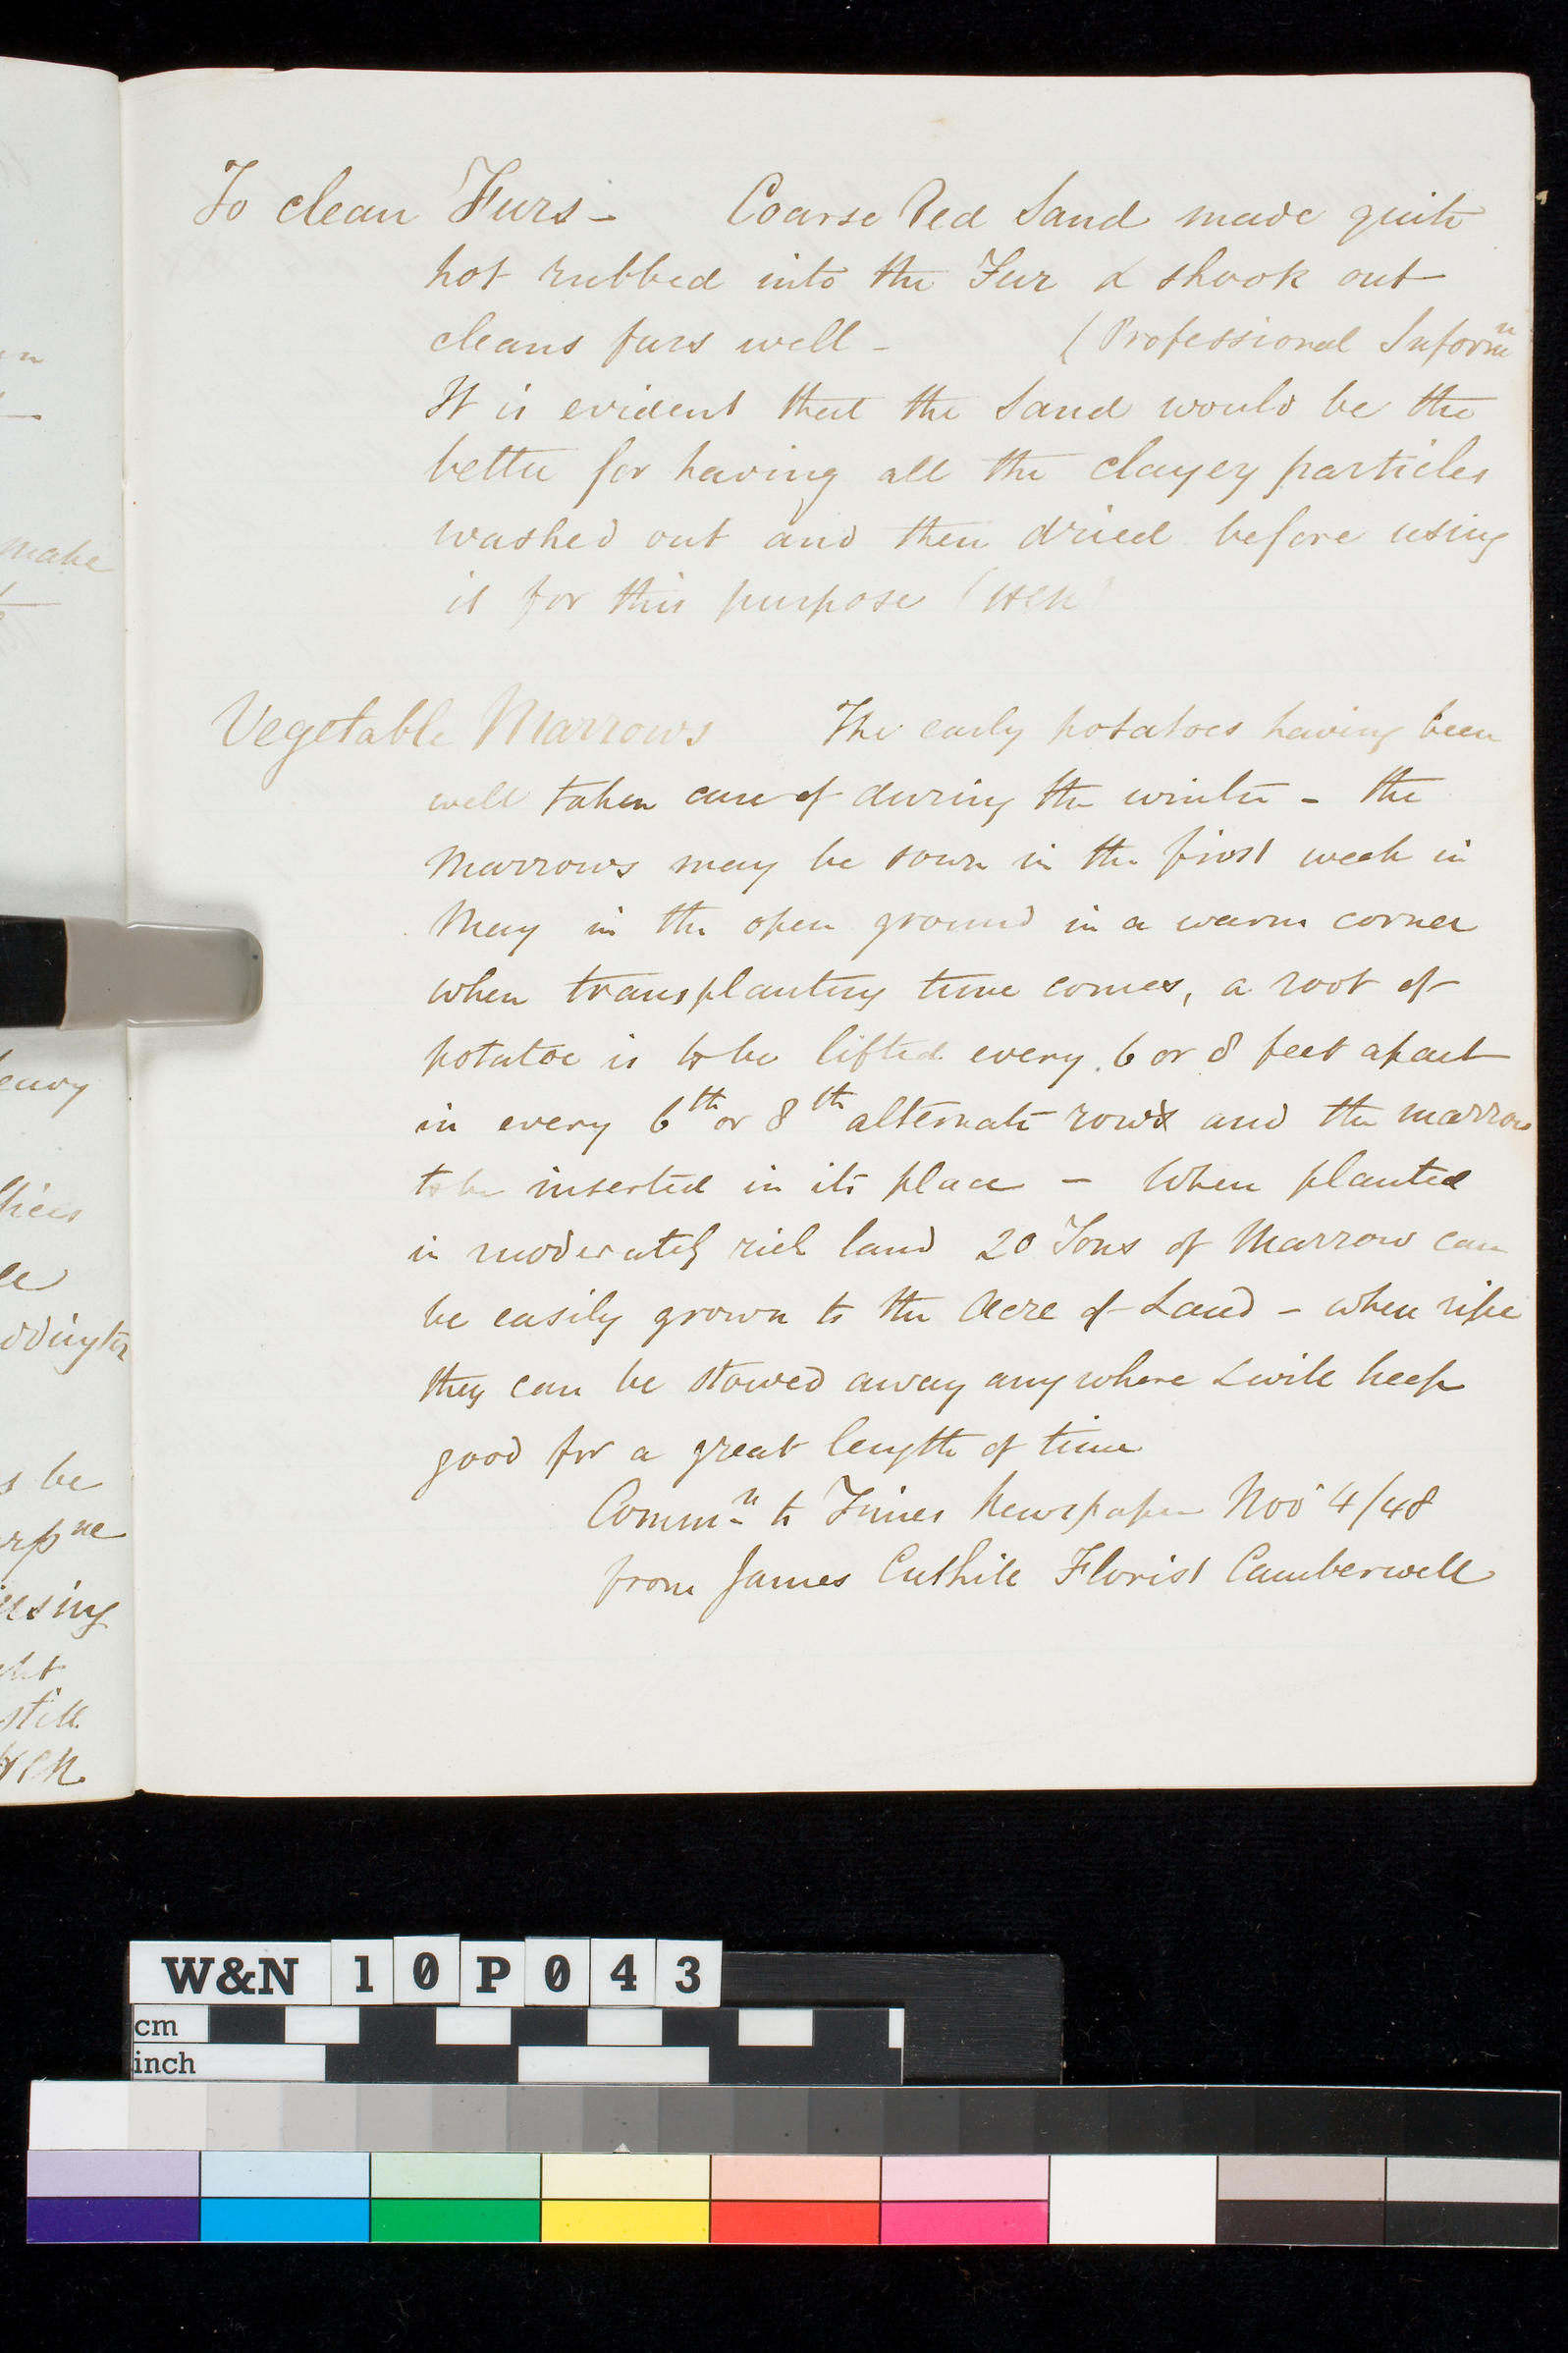 To clean Furs - Coarse Red Sand made quite
hot rubbed into the Fur & shook out
cleans furs well - (Professional Informn
It is evident that the Sand would be the
better for having all the clayey particles
washed out and then dried before using
it for this purpose (HCN)
Vegetable Marrows The early potatoes having been
well taken care of during the winter - the
Marrows may be sown in the first week in
May in the open ground in a warm corner
when transplanting time comes, a root of
potatoe is to be lifted every 6 or 8 feet apart
in every 6th or 8th alternate rows and the marrow
to be inserted in its place - When planted
in moderately rich land 20 Tons of Marrow can
be easily grown to the Acre of Land - when ripe
they can be stowed away any where & will keep
good for a great length of time
Commn to Times Newspaper Nov 4/48
from James Cuthill Florist Camberwell
make
s be
using
still
HCN
W&N 10P043
cm
inch